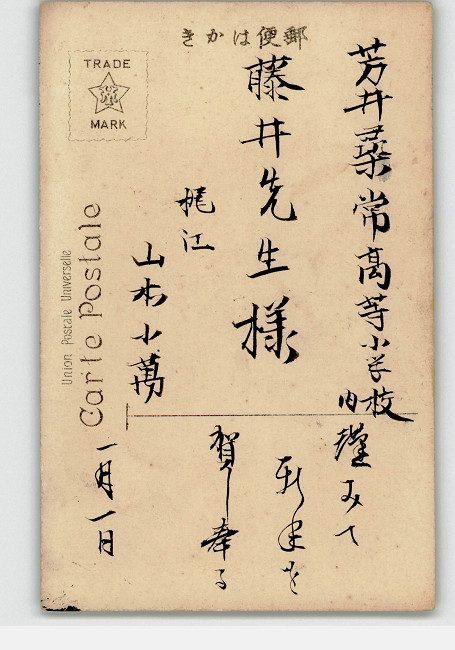 郵便はかき
TRADE
MARK
Union Postale Universelle
Carte Postale
芳井尋常高等小学校
内
藤井先生様
梶江
山本小萬
謹みて
新年を
賀し奉る
一月一日